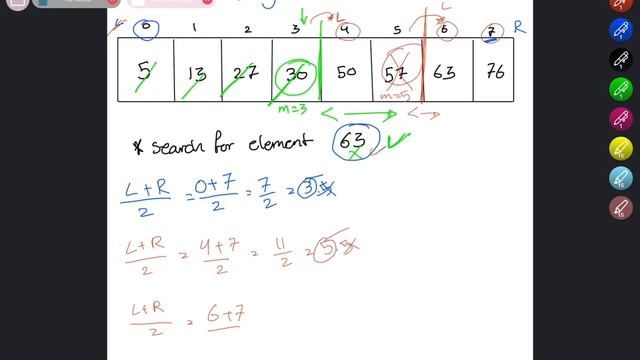 L L
0 1 2 3 4 5 6 7 R
5 13 27 30 50 57 63 76
m=3 m=5
* search for element 63
L+R/2 = 0+7/2 = 7/2 = 3.5
L+R/2 = 4+7/2 = 11/2 = 5.5
L+R/2 = 6+7